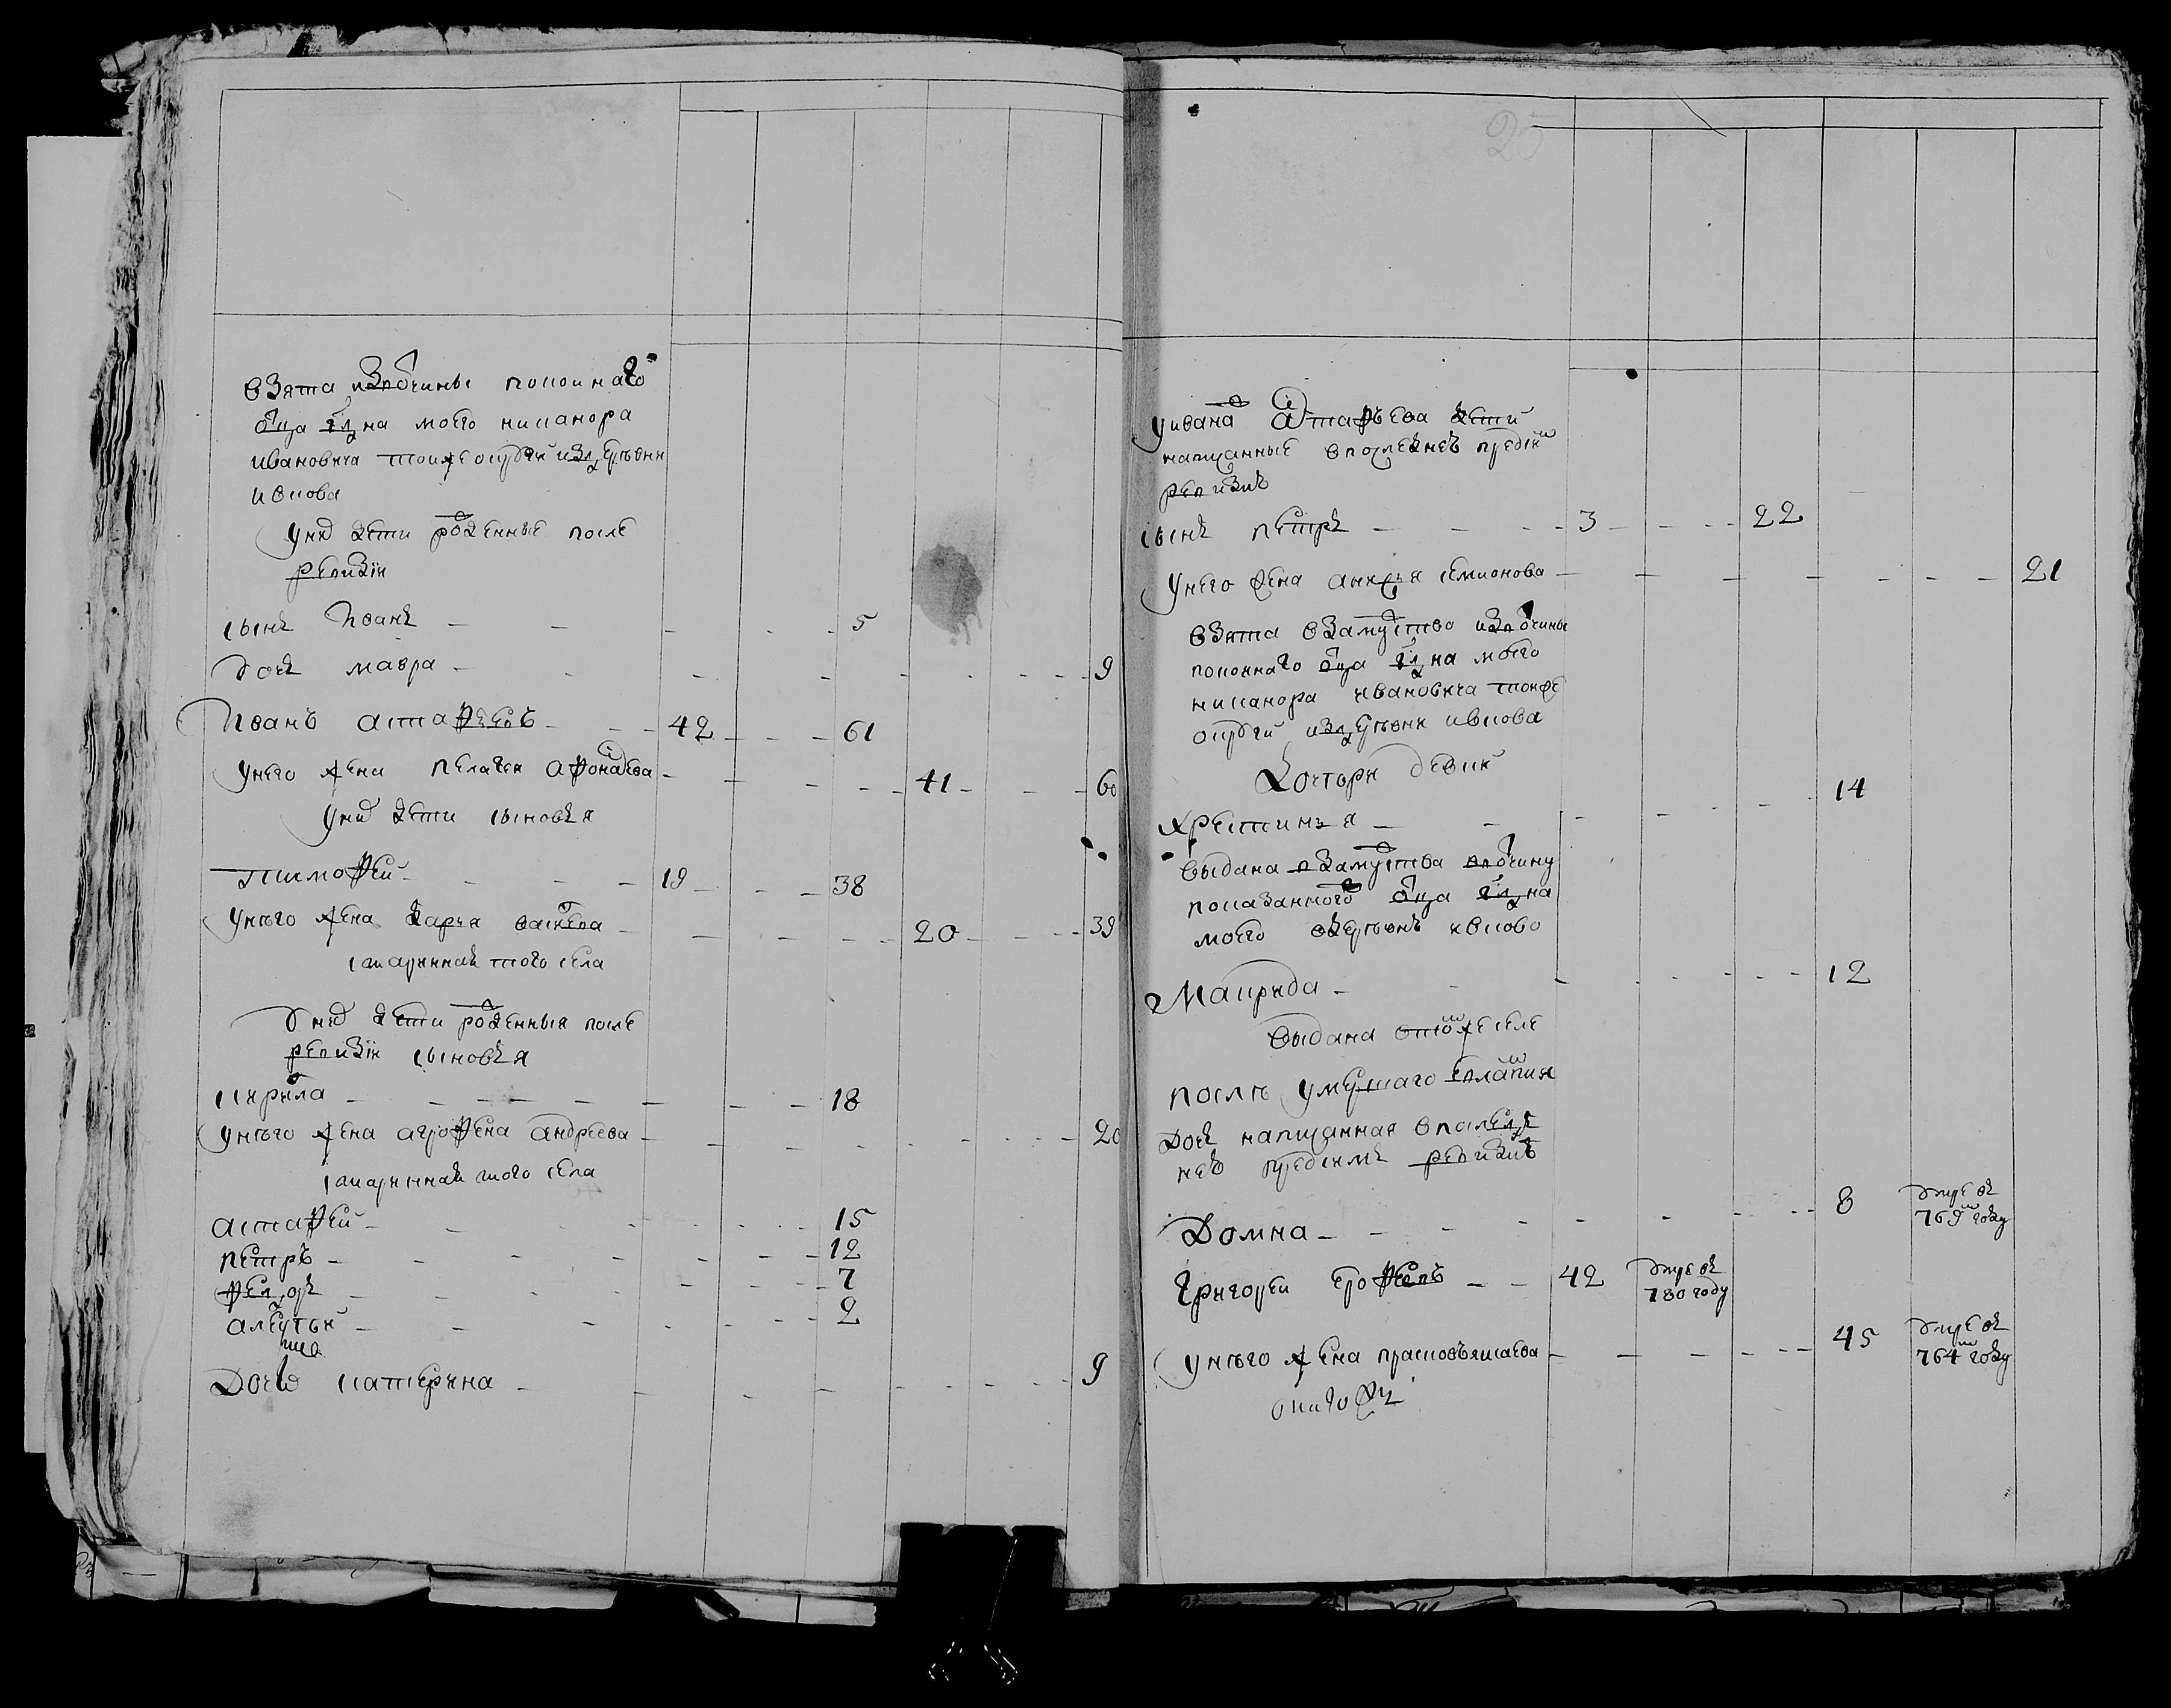 взята из вотчины покойнаго
отца гдна моего никанора
ивановича тойже округи из деревни
ивкова
у них дети рожденные после
ревизіи
сынъ Иванъ - - - - 5
дочь мавра - - - - 9
Иванъ астафьевъ - - 42 - - 61
у него жена пелагея афонасева - - 41 - - 60
у них дети сыновья
Тимофей - - 19 - - 38
у него жена дарья васильева - - 20 - - 39
старинная того села
у них дети рожденныя после
ревизіи сыновья
кирила - - - - 18
у него жена агрофена андреева - - 20
старинная того села
астафей - - - 15
петръ - - - 12
федоръ - - - 7
алексей - - - 2
дочь катерина - - - 9
25
у ивана астафьева дети
написанные в последней пред сим
ревизиі
сынъ петръ - - - 3 - - 22
у него жена семионова - - - 21
взята в замужство из вотчины
покойнаго отца гдна моего
никанора ивановича тойже
округи из деревни ивкова
Дочери девки
хрестинья - - - 14
выдана в замужства в вотчину
показанного отца гдна
моего в деревню ивково
Маврида - - - 12
выдана в томже селе
после умершаго
дочь написанная в послед
ней пред симъ ревизиі
Домна - - - 8 умре въ
769м году
Григорей ерофеевъ - - 42 умре въ
780 году
у него жена прасковья исаева - - - 45 умре въ
764м году